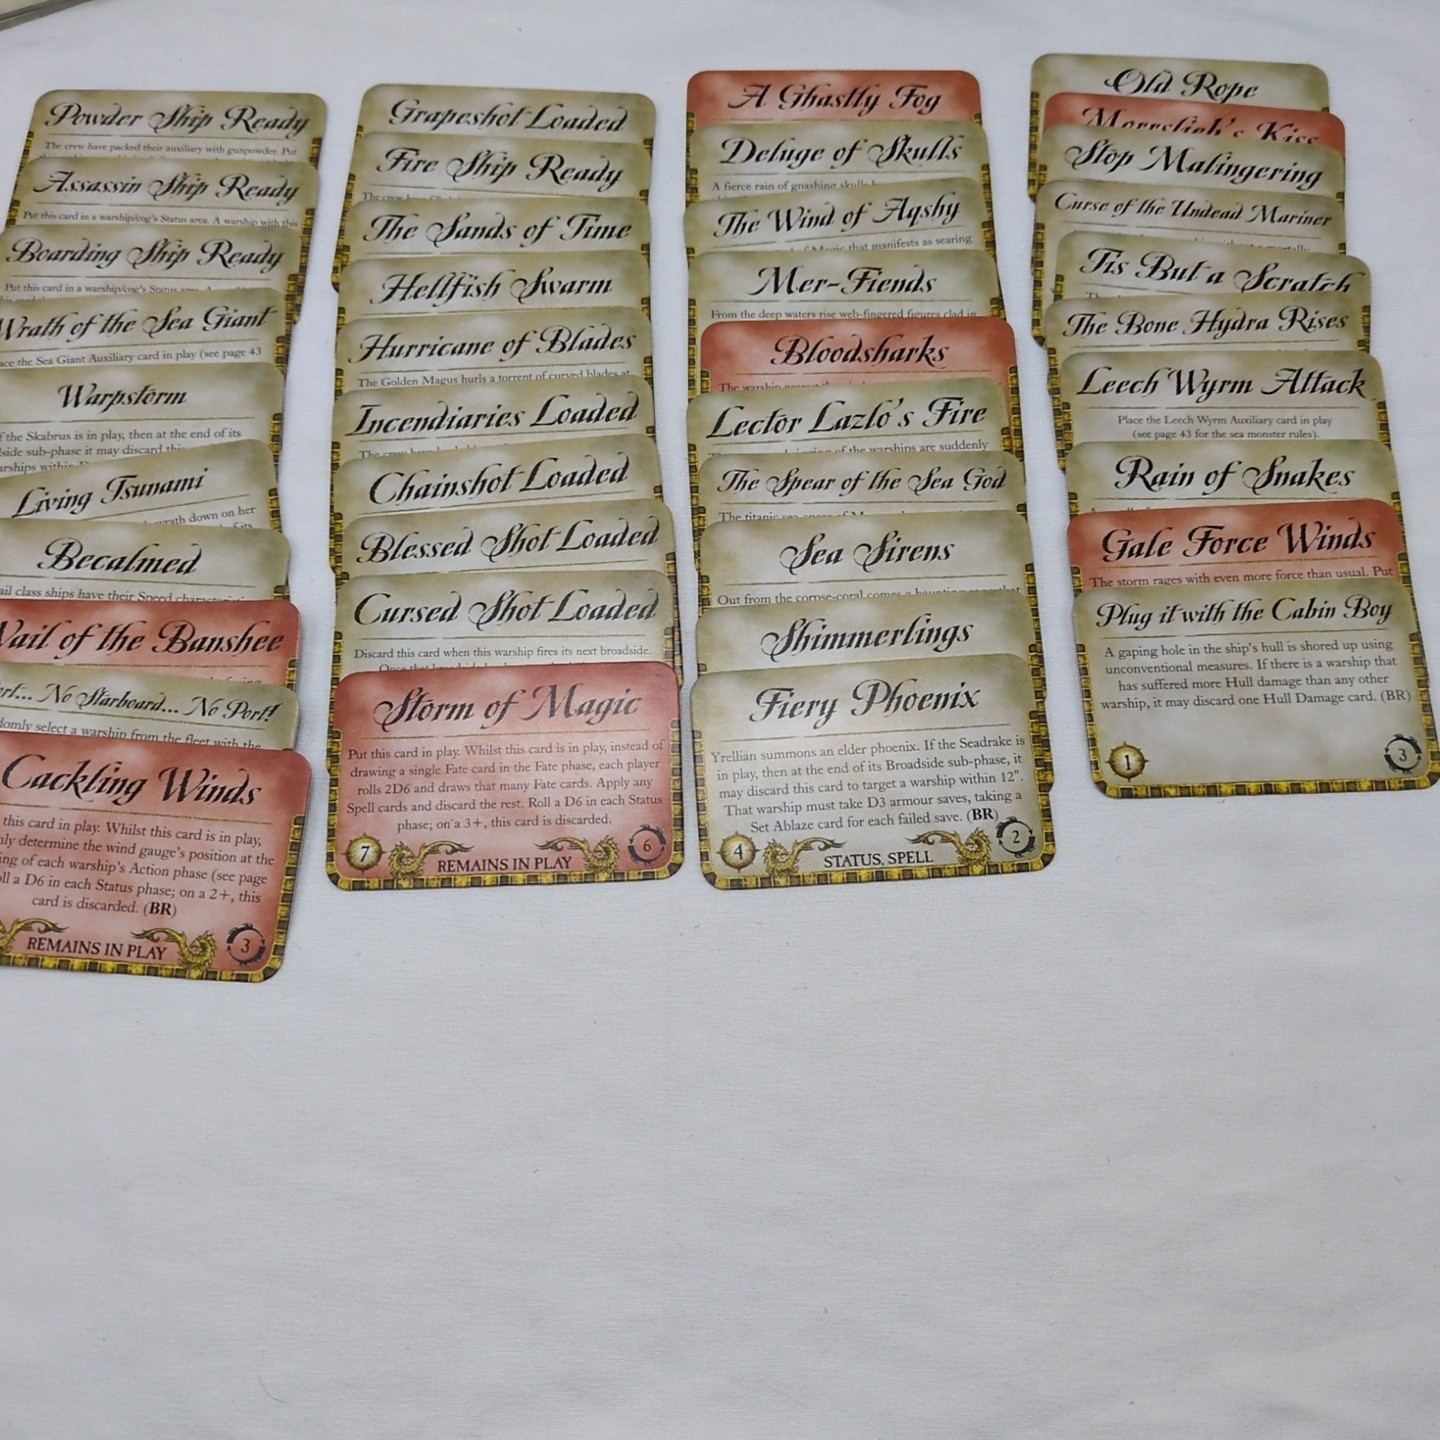 Powder Ship Ready
The crew have packed their auxiliary with gunpowder. Put
Assassin Ship Ready
Put this card in a warship/cog's Status area. A warship with this
Boarding Ship Ready
Put this card in a warship/cog's Status area.
Wrath of the Sea Giant
the Sea Giant Auxiliary card in play (see page 43
Warpstorm
the Skabrus is in play, then at the end of its
sub-phase it may discard this
within
Living Tsunami
wrath down on her
of its
Becalmed
class ships have their Speed
of the Banshee
No Starboard... No Port!
select a warship from the fleet with the
Cackling Winds
this card in play. Whilst this card is in play,
determine the wind gauge's position at the
of each warship's Action phase (see page
a D6 in each Status phase; on a 2+, this
card is discarded. (BR)
REMAINS IN PLAY
3
Grapeshot Loaded
Fire Ship Ready
The crew have
The Sands of Time
Hellfish Swarm
Hurricane of Blades
The Golden Magus hurls a torrent of curved blades at
Incendiaries Loaded
The crew have
Chainshot Loaded
Blessed Shot Loaded
Cursed Shot Loaded
Discard this card when this warship fires its next broadside.
Once that broadside
Storm of Magic
Put this card in play. Whilst this card is in play, instead of
drawing a single Fate card in the Fate phase, each player
rolls 2D6 and draws that many Fate cards. Apply any
Spell cards and discard the rest. Roll a D6 in each Status
phase; on a 3+, this card is discarded.
7
REMAINS IN PLAY
6
A Ghastly Fog
Deluge of Skulls
A fierce rain of gnashing skulls
The Wind of Aqshy
of Magic that manifests as searing
Mer-Fiends
From the deep waters rise web-fingered figures clad in
Bloodsharks
The warship nearest the
Lector Lazlo's Fire
of the warships are suddenly
The Spear of the Sea God
The titanic sea-spear of
Sea Sirens
Out from the corpse-coral comes a haunting song that
Shimmerlings
Fiery Phoenix
Yrellian summons an elder phoenix. If the Seadrake is
in play, then at the end of its Broadside sub-phase, it
may discard this card to target a warship within 12".
That warship must take D3 armour saves, taking a
Set Ablaze card for each failed save. (BR)
4
STATUS, SPELL
2
Old Rope
Morrslieb's Kiss
Stop Malingering
Curse of the Undead Mariner
Tis But a Scratch
The Bone Hydra Rises
Leech Wyrm Attack
Place the Leech Wyrm Auxiliary card in play
(see page 43 for the sea monster rules).
Rain of Snakes
Gale Force Winds
The storm rages with even more force than usual. Put
Plug it with the Cabin Boy
A gaping hole in the ship's hull is shored up using
unconventional measures. If there is a warship that
has suffered more Hull damage than any other
warship, it may discard one Hull Damage card. (BR)
1
3